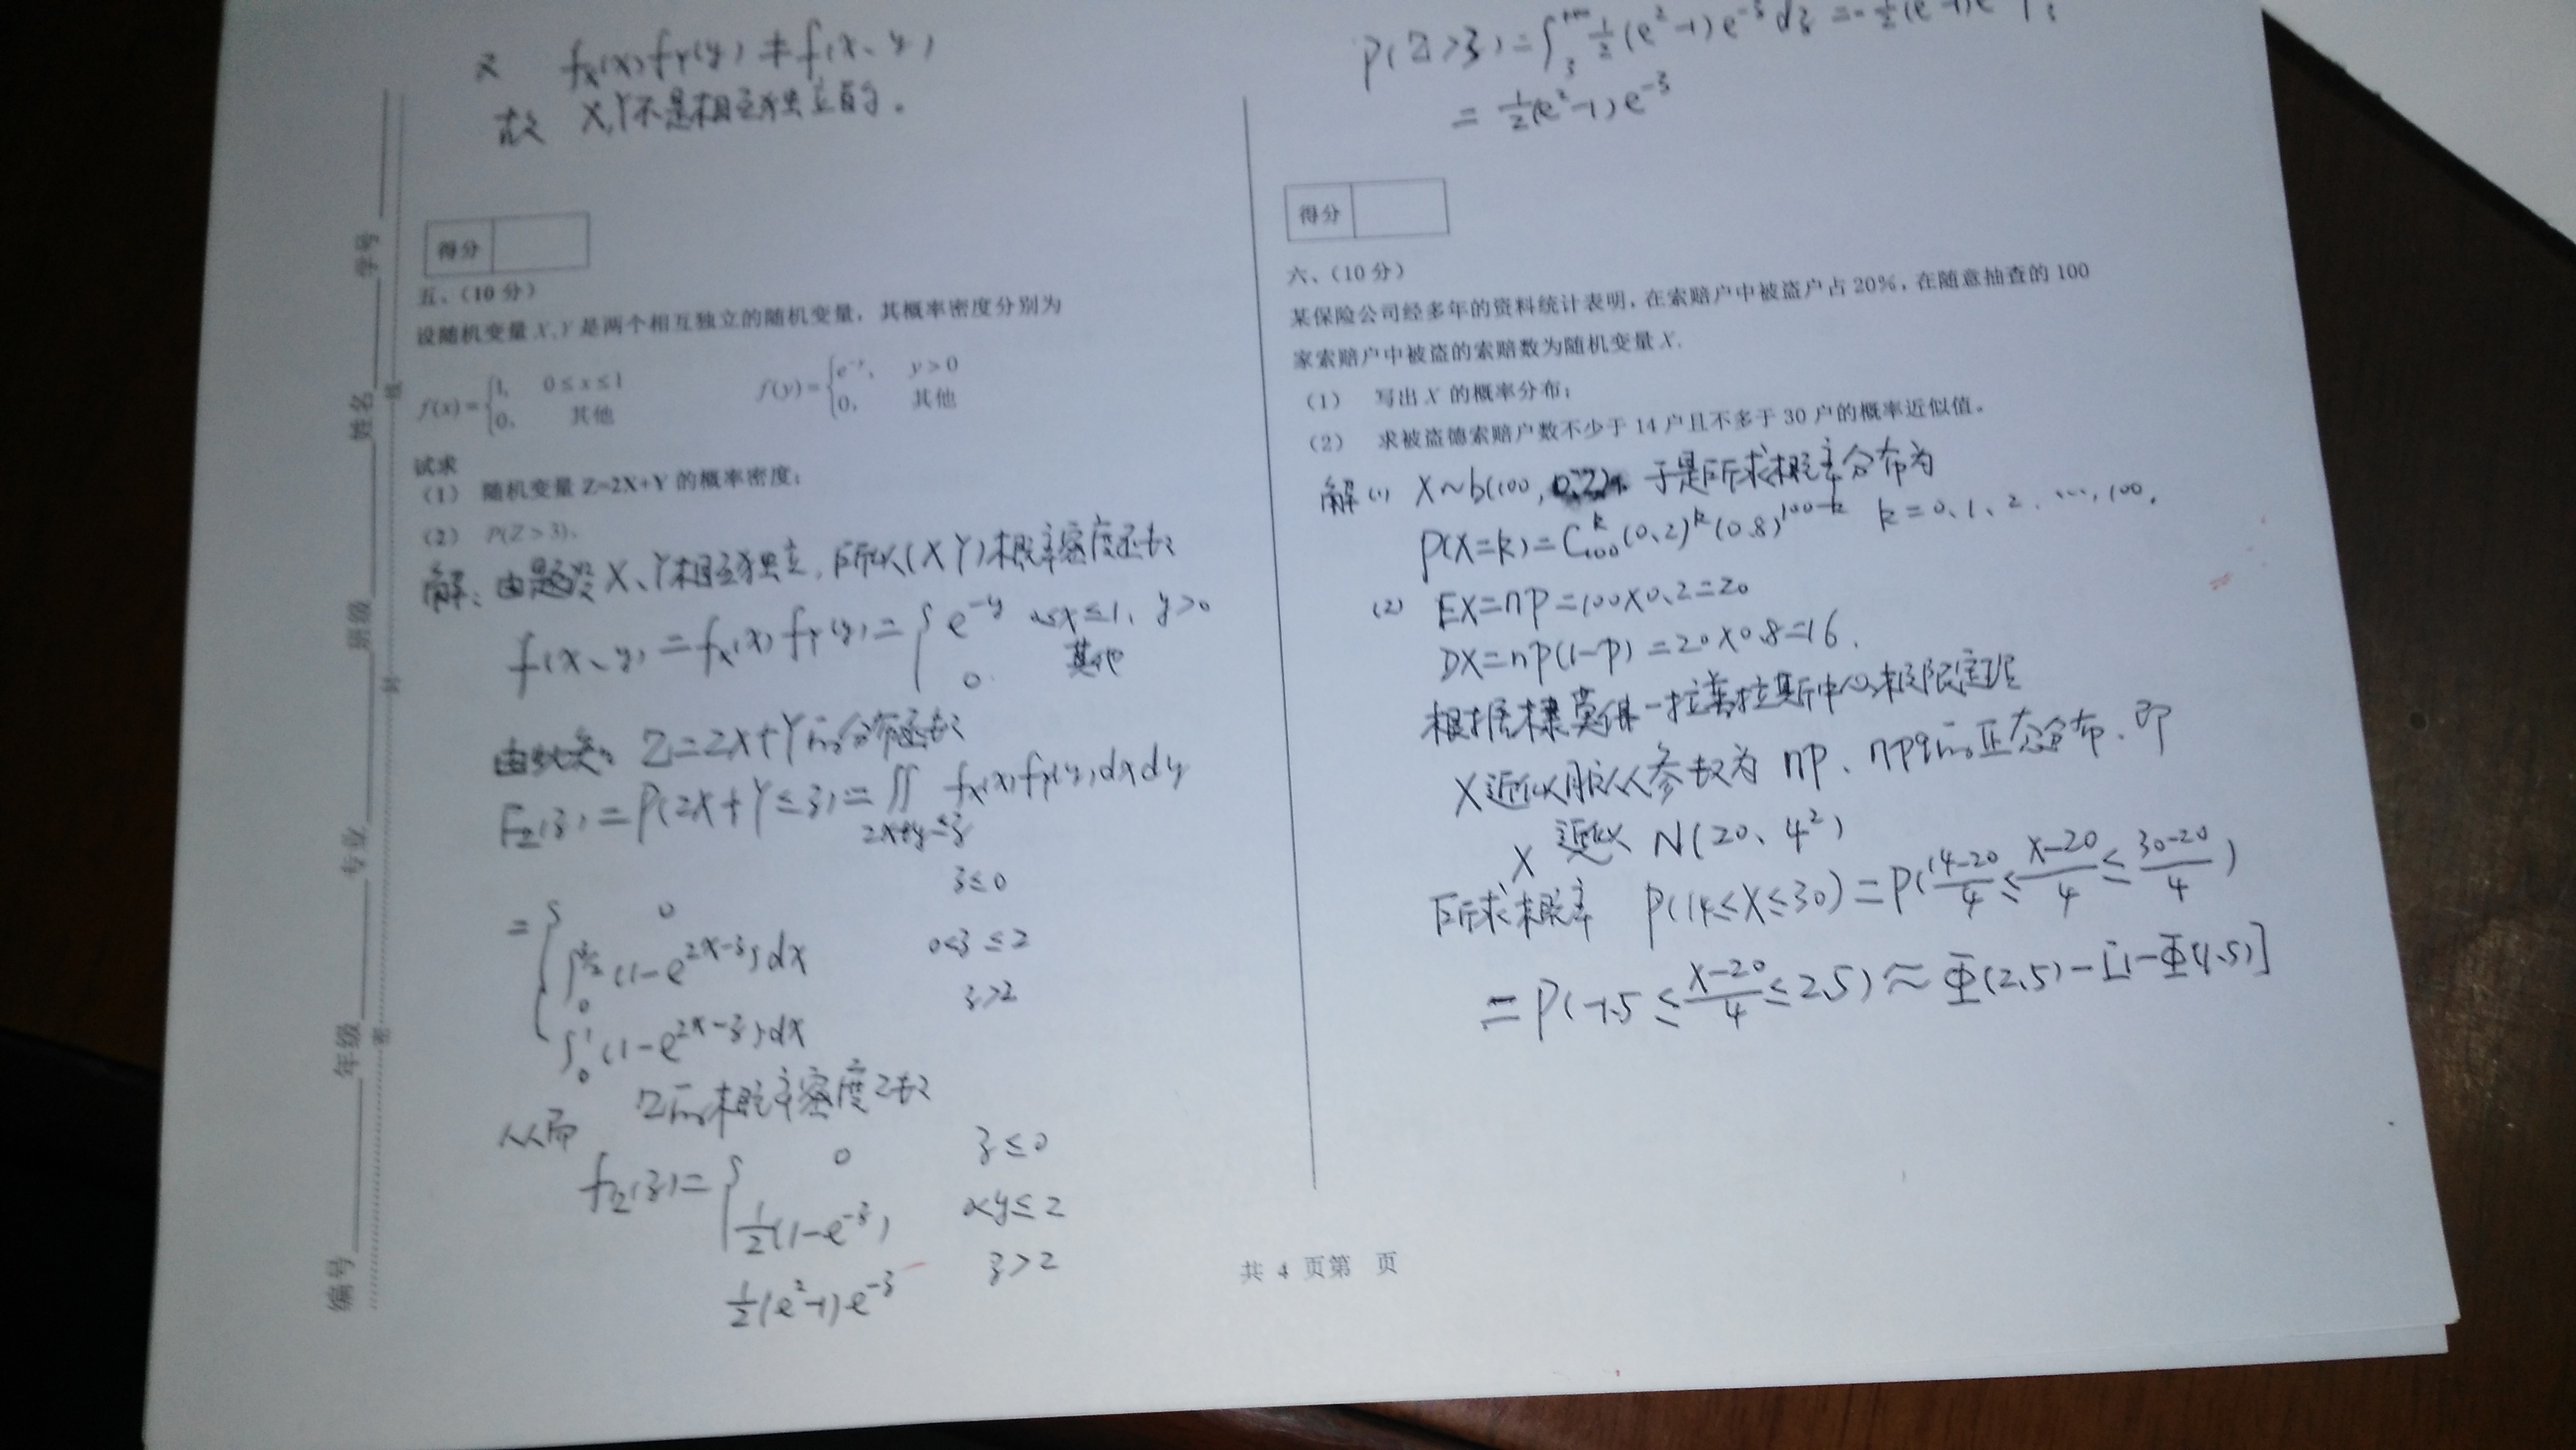 又 fx(x)fY(y)≠f(x、y)
故 X,Y不是相互独立的。
得分
五、(10分)
设随机变量 X,Y 是两个相互独立的随机变量，其概率密度分别为
f(x)={1, 0≤x≤1 f(y)={e^{-y}, y>0
0, 其他 0, 其他
试求
(1) 随机变量 Z=2X+Y 的概率密度；
(2) P(Z>3).
解：由题设X、Y相互独立，所以(X Y)概率密度函数
f(x、y)=fx(x)fY(y)={e^{-y} 0≤x≤1、y>0
0. 其他
Z=2X+Y的分布函数
Fz(z)=P(2X+Y≤z)=∬ fx(x)fY(y)dxdy
2x+y≤z
={0 z≤0
∫_0^{z/2}(1-e^{2x-z})dx 0<z≤2
∫_0^1(1-e^{2x-z})dx z>2
从而 Z的概率密度函数
fz(z)={0 z≤0
1/2(1-e^{-z}) 0<y≤2
1/2(e^2-1)e^{-z} z>2
P(Z>3)=∫_3^{+∞} 1/2(e^2-1)e^{-z}dz=-1/2(e^2-1)e
=1/2(e^2-1)e^{-3}
得分
六、(10分)
某保险公司经多年的资料统计表明，在索赔户中被盗户占20%，在随意抽查的100
家索赔户中被盗的索赔数为随机变量X.
(1) 写出X的概率分布；
(2) 求被盗德索赔户数不少于14户且不多于30户的概率近似值。
解(1) X~b(100, 0.2). 于是所求概率分布为
P(X=k)=C_{100}^k(0.2)^k(0.8)^{100-k} k=0、1、2、…,100.
(2) EX=np=100×0.2=20
DX=np(1-p)=20×0.8=16.
根据棣莫佛-拉普拉斯中心极限定理
X近似服从参数为np、npq的正态分布、即
X 近似 N(20、4^2)
所求概率 P(14≤X≤30)=P((14-20)/4≤(X-20)/4≤(30-20)/4)
=P(-1.5≤(X-20)/4≤2.5)≈Φ(2.5)-[1-Φ(1.5)]
共 4 页第 页
编号
年级
专业
班级
姓名
学号
密
封
线